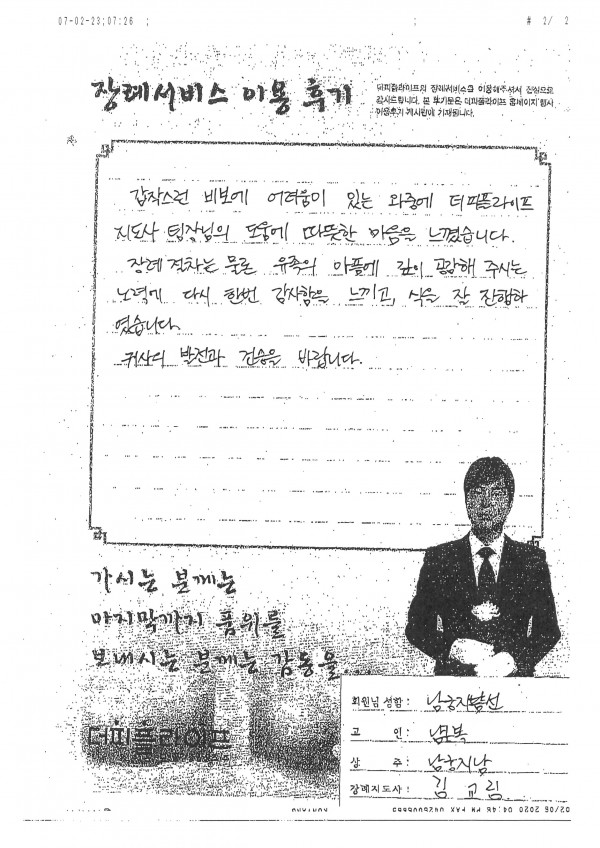 07-02-23;07:26 ; ; # 2/ 2
장례서비스 이용 후기
더피플라이프의 장례서비스를 이용해주셔서 진심으로
감사드립니다. 본 후기문은 더피플라이프 홈페이지 행사
이용후기 게시판에 기재됩니다.
갑작스런 비보에 어려움이 있는 와중에 더피플라이프
지도사 팀장님의 도움에 따뜻한 마음을 느꼈습니다.
장례 절차는 물론 유족의 아픔에 깊이 공감해 주시는
노력에 다시 한번 감사함을 느끼고, 식을 잘 진행하
였습니다.
귀사의 발전과 건승을 바랍니다.
가시는 분께는
마지막까지 품위를
보내시는 분께는 감동을...
더피플라이프
회원님 성함 :
고 인 :
상 주 : 남궁지남
장례지도사 : 김 교림
02/06 2020 04:48 PM FAX